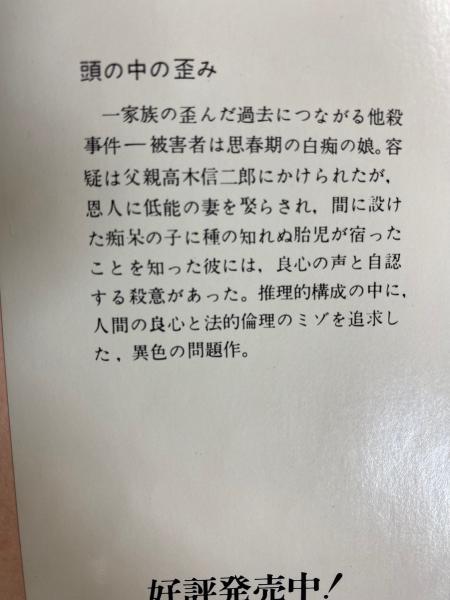 頭の中の歪み
一家族の歪んだ過去につながる他殺
事件─被害者は思春期の白痴の娘。容
疑は父親高木信二郎にかけられたが，
恩人に低能の妻を娶らされ，間に設け
た痴呆の子に種の知れぬ胎児が宿った
ことを知った彼には，良心の声と自認
する殺意があった。推理的構成の中に，
人間の良心と法的倫理のミゾを追求し
た，異色の問題作。
好評発売中！